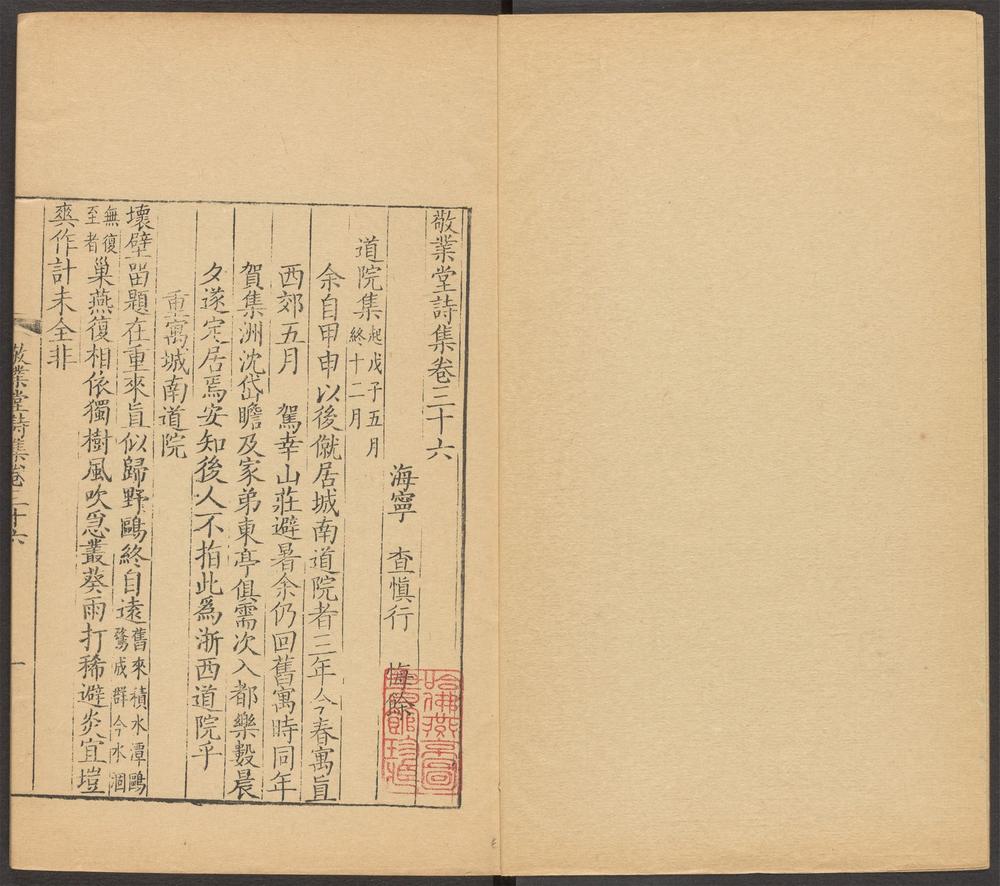 敬業堂詩集卷三十六
海寧　查慎行　悔餘
道院集起戊子五月
終十二月
余自甲申以後僦居城南道院者三年今春寓直
西郊五月　駕幸山莊避暑余仍回舊寓時同年
賀集洲沈岱瞻及家弟東亭俱需次入都樂數晨
夕遂定居焉安知後人不指此爲浙西道院乎
重寓城南道院
壞壁畱題在重來直似歸野鷗終自遠舊來積水潭鷗
鶩成群今水涸
無復
至者巢燕復相依獨樹風吹急叢葵雨打稀避炎宜塏
爽作計未全非
敬業堂詩集卷三十六　一
哈佛燕京圖
書館珍藏